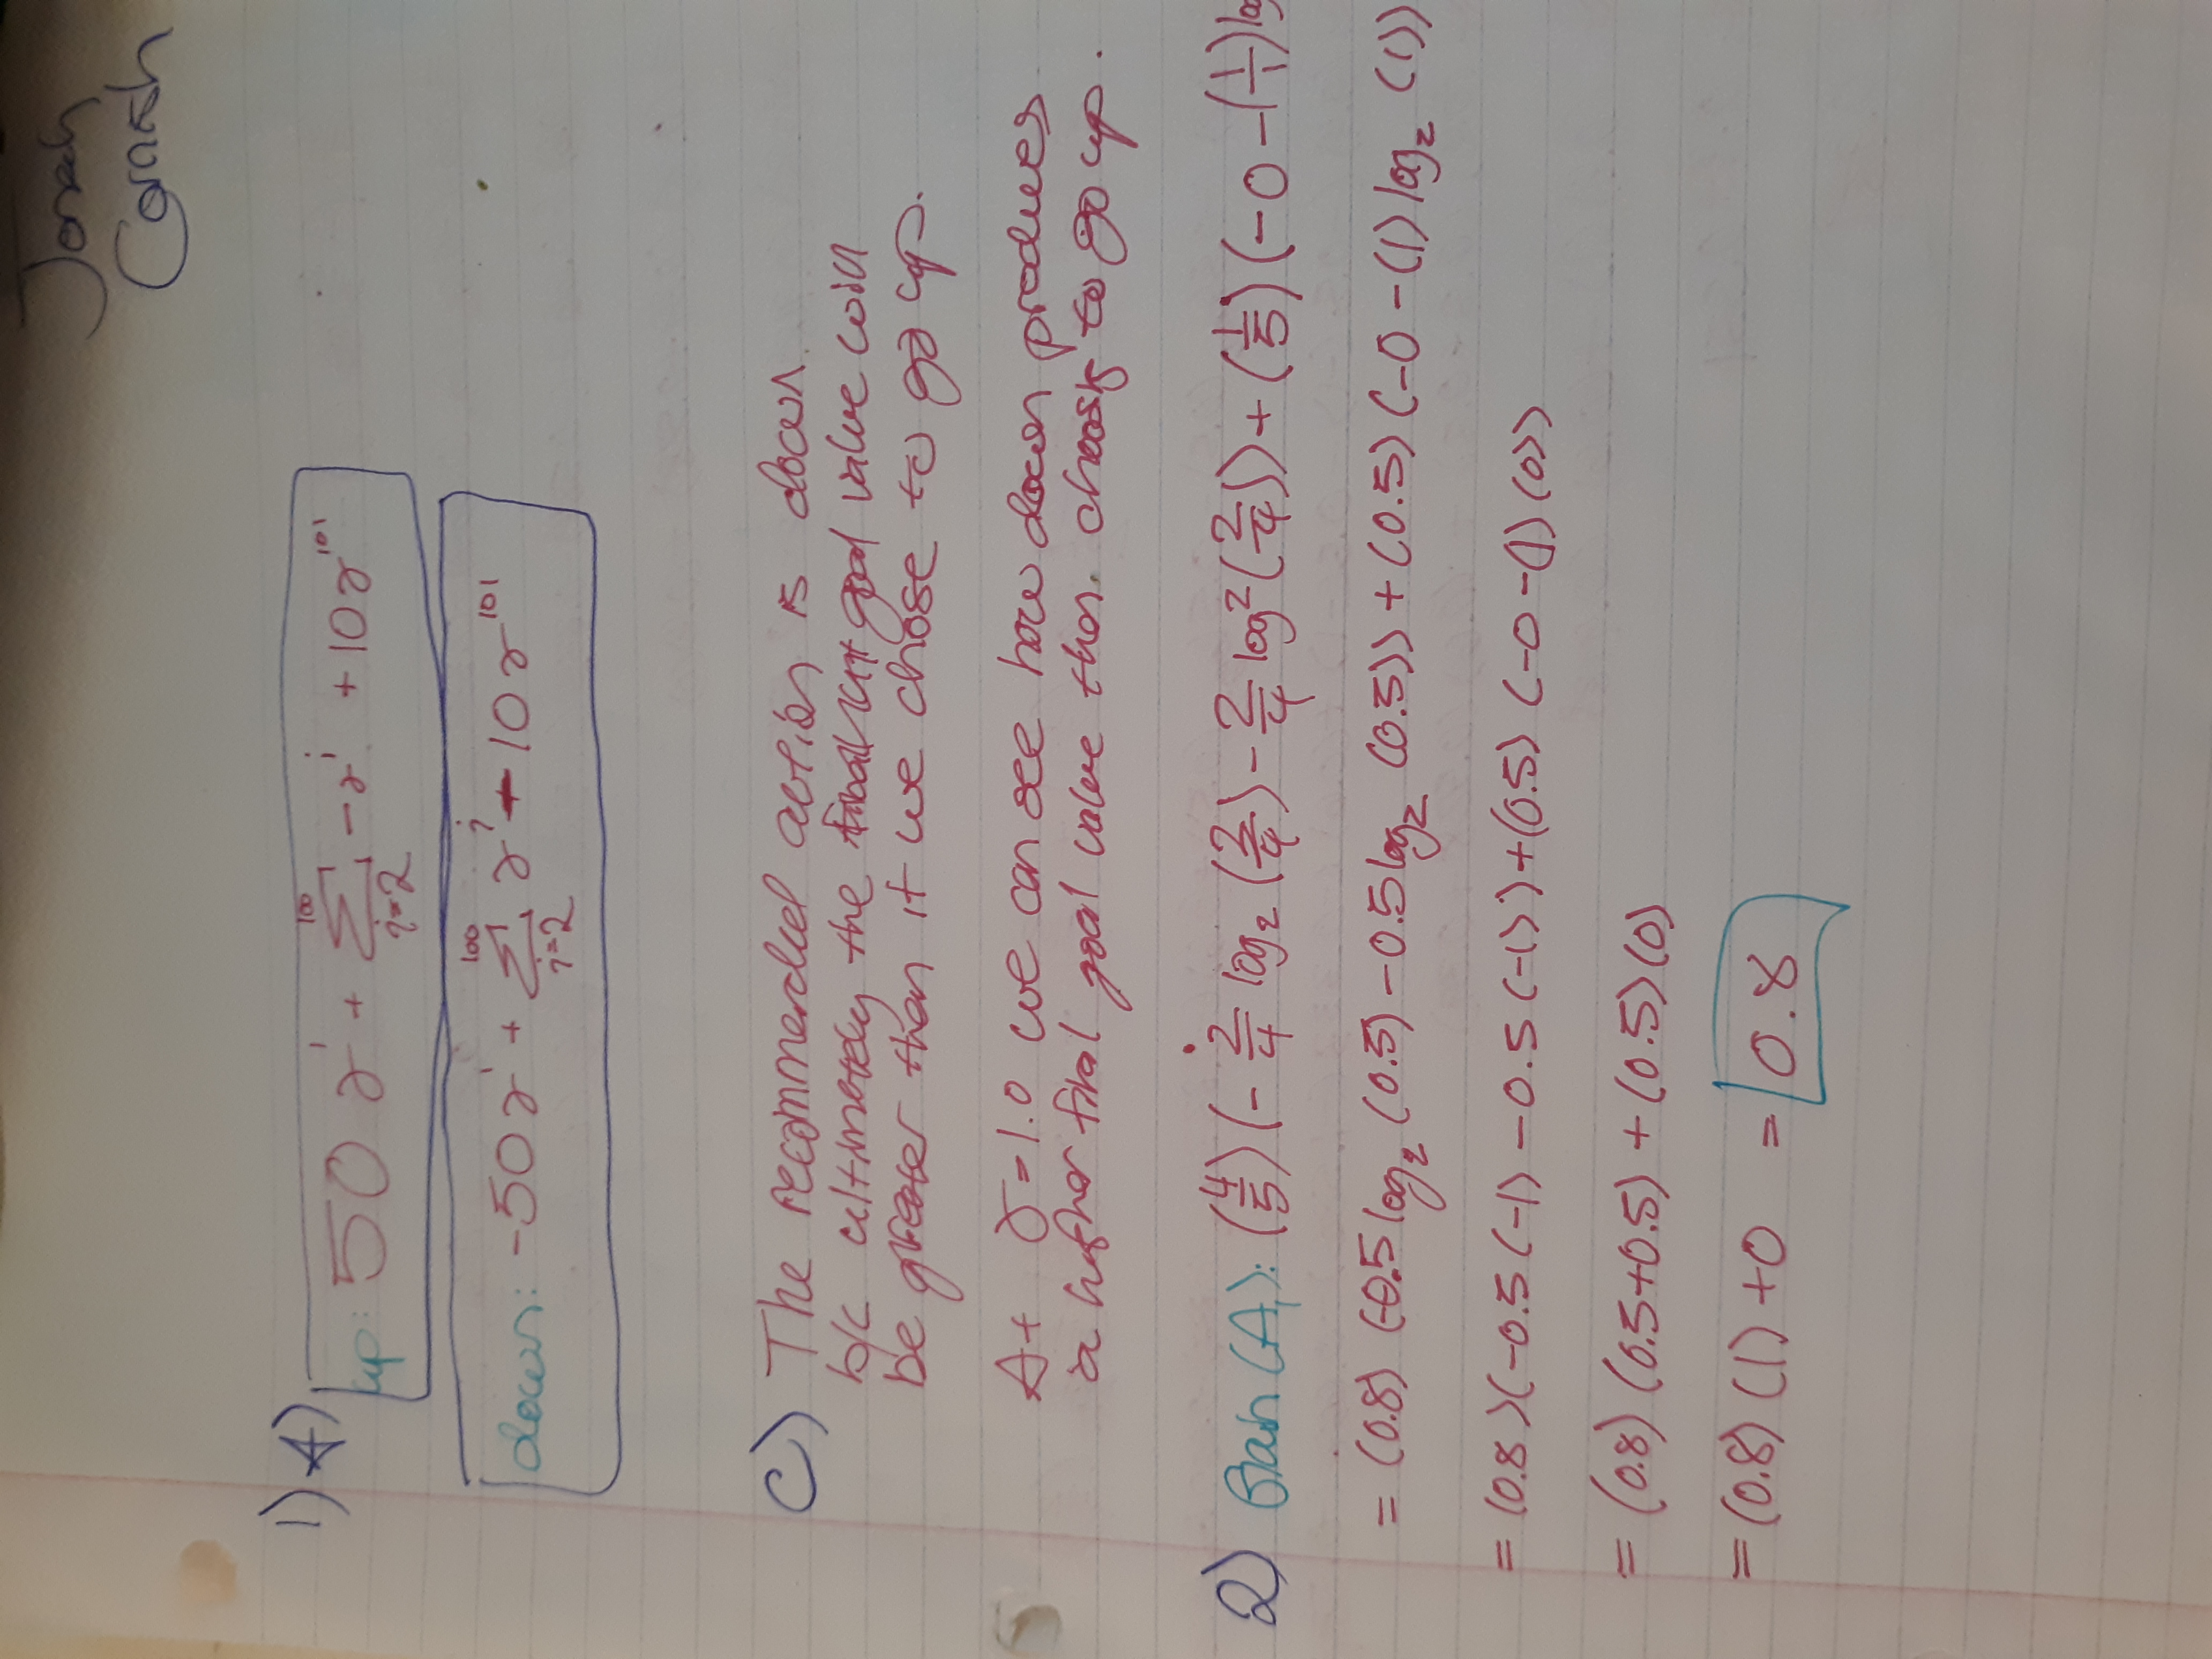 Jonah
Cornish
1) A)
up: 50 γ¹ + Σ_{i=2}^{100} -γ^i + 10γ^{101}
down: -50γ¹ + Σ_{i=2}^{100} γ^i - 10γ^{101}
C) The recommended action is down.
b/c ultimately the goal value will
be greater then if we chose to go up.
At γ=1.0 we can see how down produces
a higher final goal value then. choosing to go up.
2) Gain (A₁): (4/5)(- 2/4 log₂ (2/4) - 2/4 log² (2/4)) + (1/5) (-0 -(1/1) log
= (0.8) (-0.5 log₂ (0.5) - 0.5 log₂ (0.5)) + (0.5) (-0 - (1) log₂ (1))
= (0.8)(-0.5 (-1) - 0.5 (-1)) + (0.5) (-0 -(1) (0))
= (0.8) (0.5+0.5) + (0.5)(0)
= (0.8) (1) +0 = 0.8